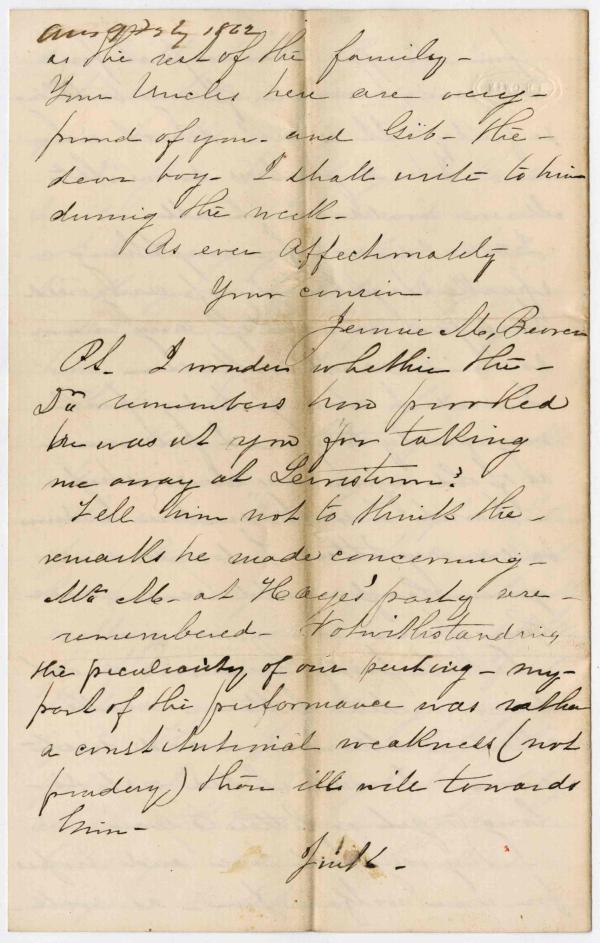 1862
as the rest of the family -
Your Uncles here are very -
proud of you - and Gib - the -
dear boy - I shall write to him
during the week -
As ever Affectionately
Your cousin
Jennie M. Beaver
P.S. I wonder whether the -
Dr. remembers how provoked
he was at you for taking
me away at Lewistown?
Tell him not to think the -
remarks he made concerning -
Mr. M - at Hayes' party are -
remembered - Notwithstanding
the peculiarity of our parting - my -
part of the performance was rather
a constitutional weakness (not
prudery) than ill will towards
him -